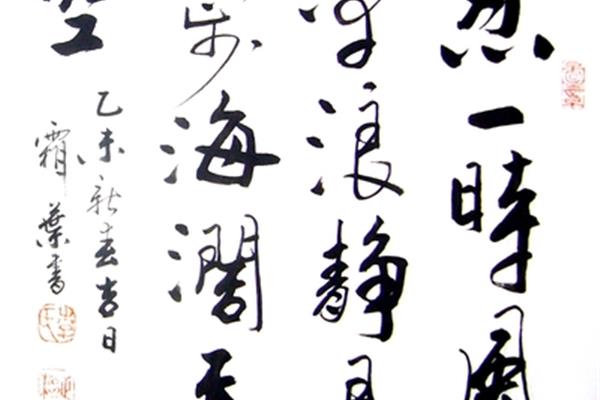 忍一時風
平浪靜
步海濶天
空
乙未新春吉日
霜葉書